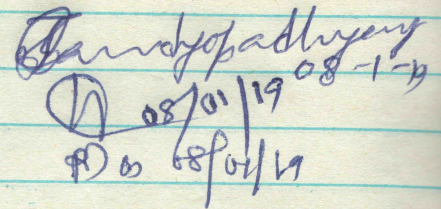 Bandyopadhyay
08-1-19
08/01/19
08/01/19